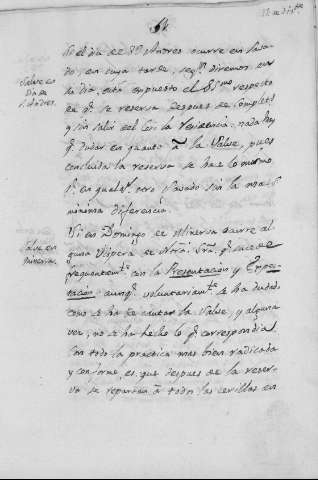 Si el dia de Sn. Andres ocurre en Saba-
do, en cuya tarde, segn. diremos en
su dia, está expuesto el SSmo. respeto
de qe. se reserva despues de Complets.
y sin salir del Coro la Residencia; nada hay
qe. dudar en quanto a la Salve, pues
concluida la reserva se hace lo mismo
qe. en qualqr. otro Sabado sin la mas
minima diferencia.
Salve en
dia de
S. Andres.
Si en Domingo de Minerva ocurre al-
guna Vispera de Ntra. Sra. qe. sucede
frequentemte. con la Presentacion y Expec-
tacion, aunqe. voluntariamte. se ha dudado
como se ha de cantar la Salve, y alguna
vez, no se ha hecho lo qe. correspondia.
Con todo la practica mas bien radicada
y conforme, es, que despues de la reser-
va se reparten à todos las cerillas en
Salve en
Minerva.